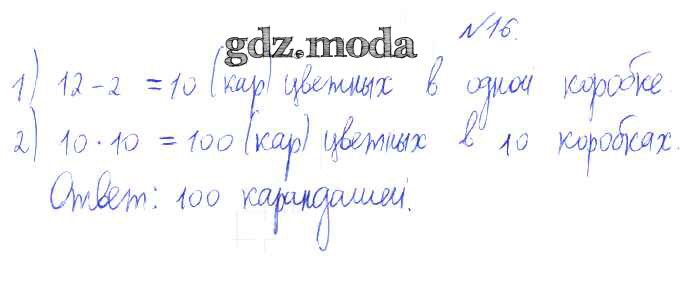 №16.
gdz.moda
1) 12-2 = 10 (кар) цветных в одной коробке.
2) 10·10 = 100 (кар) цветных в 10 коробках.
Ответ: 100 карандашей.